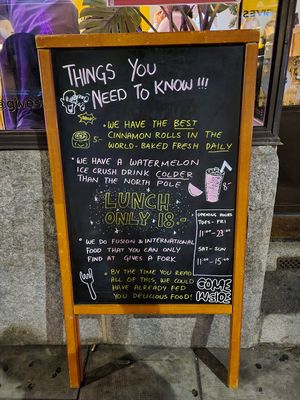 GIVES
THINGS YOU
NEED TO KNOW!!!
• WE HAVE THE BEST
CINNAMON ROLLS IN THE
WORLD - BAKED FRESH DAILY
5-
• WE HAVE A WATERMELON
ICE CRUSH DRINK COLDER
THAN THE NORTH POLE
8-
LUNCH
ONLY 18.-
• WE DO FUSION & INTERNATIONAL
FOOD THAT YOU CAN ONLY
FIND AT GIVES A FORK.
OPENING HOURS
TUES - FRI
11:00 - 23:00
SAT - SUN
11:00 - 15:00
• BY THE TIME YOU READ
ALL OF THIS, WE COULD
HAVE ALREADY FED
YOU DELICIOUS FOOD!
COME
INSIDE